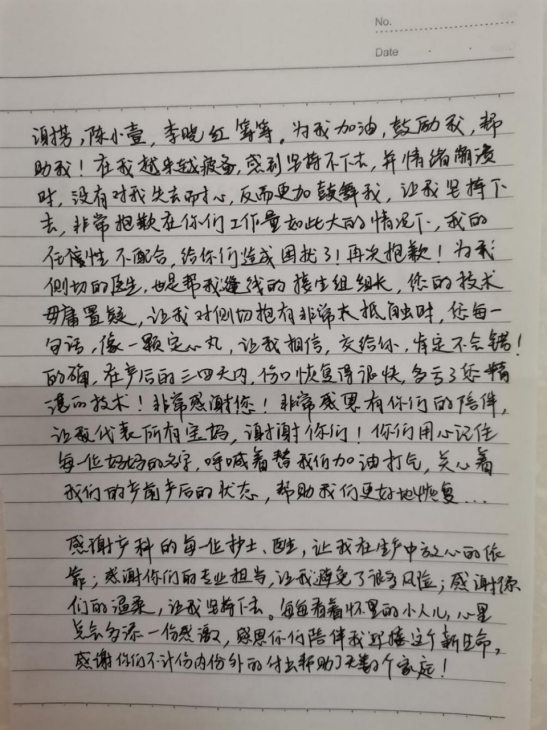 No.
Date
谢携，陈小萱，李晓红等等。为我加油，鼓励我，帮
助我！在我越来越疲惫，感到坚持不下去，并情绪崩溃
时，没有对我失去耐心，反而更加鼓舞我，让我坚持下
去，非常抱歉在你们工作量如此大的情况下，我的
任性不配合，给你们造成困扰了！再次抱歉！为我
侧切的医生，也是帮我缝线的接生组组长，您的技术
毋庸置疑，让我对侧切抱有非常大抵触时，您每一
句话，像一颗定心丸，让我相信，交给你，肯定不会错！
的确，在产后的三四天内，伤口恢复得很快，多亏了您精
湛的技术！非常感谢您！非常感恩有你们的陪伴，
让我代表所有宝妈，谢谢你们！你们用心记住
每一位妈妈的名字，呼喊着替我们加油打气，关心着
我们的产前产后的状态，帮助我们更好地恢复...
感谢产科的每一位护士、医生，让我在生产中放心的依
靠；感谢你们的专业担当，让我避免了很多风险；感谢你
们的温柔，让我坚持下去。每每看着怀里的小人儿，心里
总会多添一份感激，感恩你们陪伴我迎接这个新生命，
感谢你们不计份内份外的付出帮助了无数个家庭！